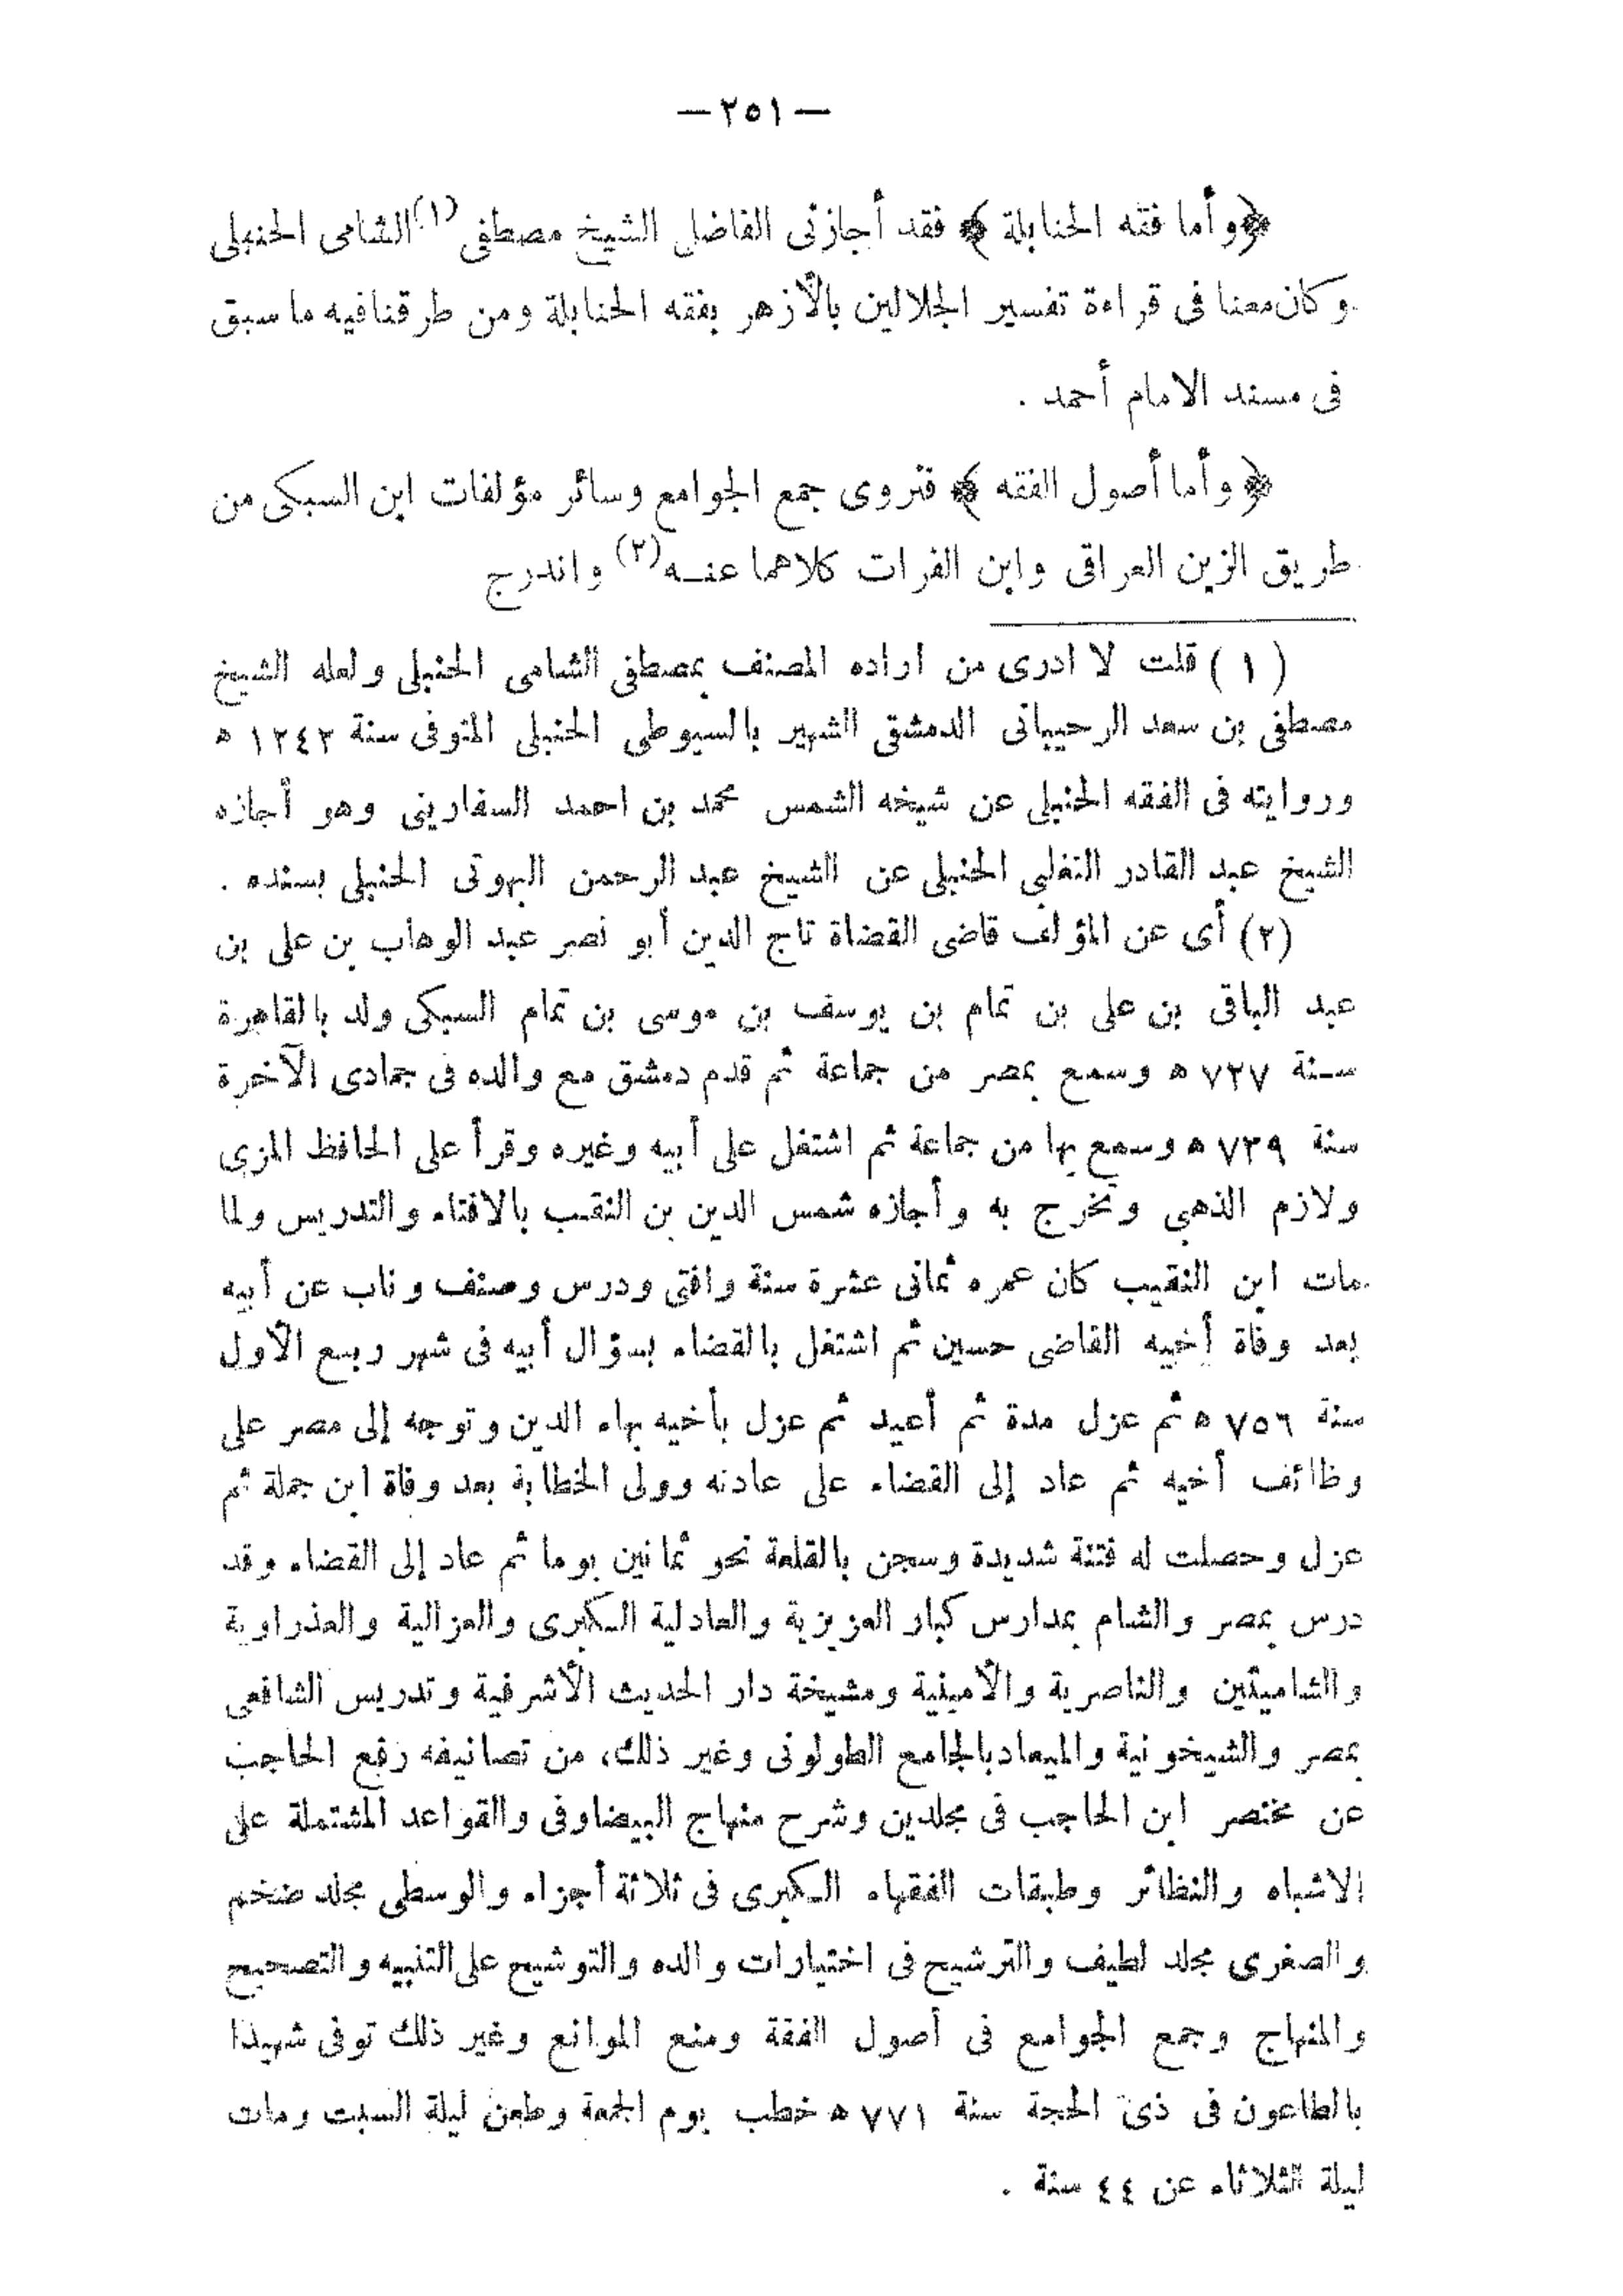 — ٢٥١ —
﴿ وأما فقه الحنابلة ﴾ فقد أجازنى الفاضل الشيخ مصطفى (١) الشامى الحنبلى
وكان معنا فى قراءة تفسير الجلالين بالأزهر بفقه الحنابلة ومن طرقنا فيه ما سبق
فى مسند الامام أحمد .
﴿ وأما أصول الفقه ﴾ فنروى جمع الجوامع وسائر مؤلفات ابن السبكى من
طريق الزين العراقى وابن الفرات كلاهما عنـه (٢) واندرج
( ١ ) قلت لا ادرى من اراده المصنف بمصطفى الشامى الحنبلى ولعله الشيخ
مصطفى بن سعد الرحيبانى الدمشقى الشهير بالسيوطى الحنبلى المتوفى سنة ١٢٤٣ ه
وروايته فى الفقه الحنبلى عن شيخه الشمس محمد بن احمد السفارينى وهو أجازه
الشيخ عبد القادر التغلبى الحنبلى عن الشيخ عبد الرحمن البهوتى الحنبلى بسنده .
(٢) أى عن المؤلف قاضى القضاة تاج الدين أبو نصر عبد الوهاب بن على بن
عبد الباقى بن على بن تمام بن يوسف بن موسى بن تمام السبكى ولد بالقاهرة
سـنة ٧٢٧ ه وسمع بمصر من جماعة ثم قدم دمشق مع والده فى جمادى الآخرة
سنة ٧٣٩ ه وسمع بها من جماعة ثم اشتغل على أبيه وغيره وقرأ على الحافظ المزى
ولازم الذهبى وتخرج به وأجازه شمس الدين بن النقيب بالافتاء والتدريس ولما
مات ابن النقيب كان عمره ثمانى عشرة سنة وافتى ودرس وصنف وناب عن أبيه
بعد وفاة أخيه القاضى حسين ثم اشتغل بالقضاء بسؤال أبيه فى شهر ربيع الأول
سنة ٧٥٦ ه ثم عزل مدة ثم أعيد ثم عزل بأخيه بهاء الدين وتوجه إلى مصر على
وظائف أخيه ثم عاد إلى القضاء على عادته وولى الخطابة بعد وفاة ابن جملة ثم
عزل وحصلت له فتنة شديدة وسجن بالقلعة نحو ثمانين يوما ثم عاد إلى القضاء وقد
درس بمصر والشام بمدارس كبار العزيزية والعادلية الكبرى والغزالية والعذراوية
والشاميتين والناصرية والأمينية ومشيخة دار الحديث الأشرفية وتدريس الشافعى
بمصر والشيخونية والميعاد بالجامع الطولونى وغير ذلك، من تصانيفه رفع الحاجب
عن مختصر ابن الحاجب فى مجلدين وشرح منهاج البيضاوفى والقواعد المشتملة على
الاشباه والنظائر وطبقات الفقهاء الكبرى فى ثلاثة أجزاء والوسطى مجلد ضخم
والصغرى مجلد لطيف والترشيح فى اختيارات والده والتوشيح على التنبيه والتصحيح
والمنهاج وجمع الجوامع فى أصول الفقة ومنع الموانع وغير ذلك توفى شهيدا
بالطاعون فى ذى الحجة سنة ٧٧١ ه خطب يوم الجمعة وطعن ليلة السبت ومات
ليلة الثلاثاء عن ٤٤ سنة .